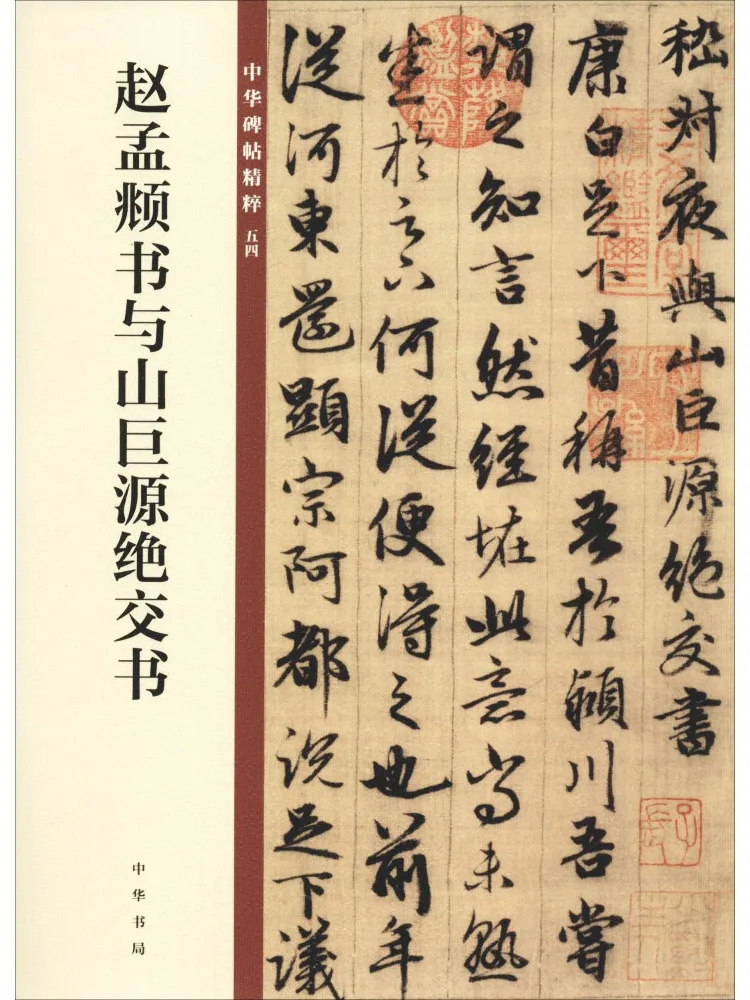 赵孟𫖯书与山巨源绝交书
中华碑帖精粹 五四
中华书局
嵇叔夜與山巨源絶交書
康白足下昔稱吾於潁川吾嘗
謂之知言然經恠此意尚未熟
悉於足下何從便得之也前年
從河東還顯宗阿都説足下議